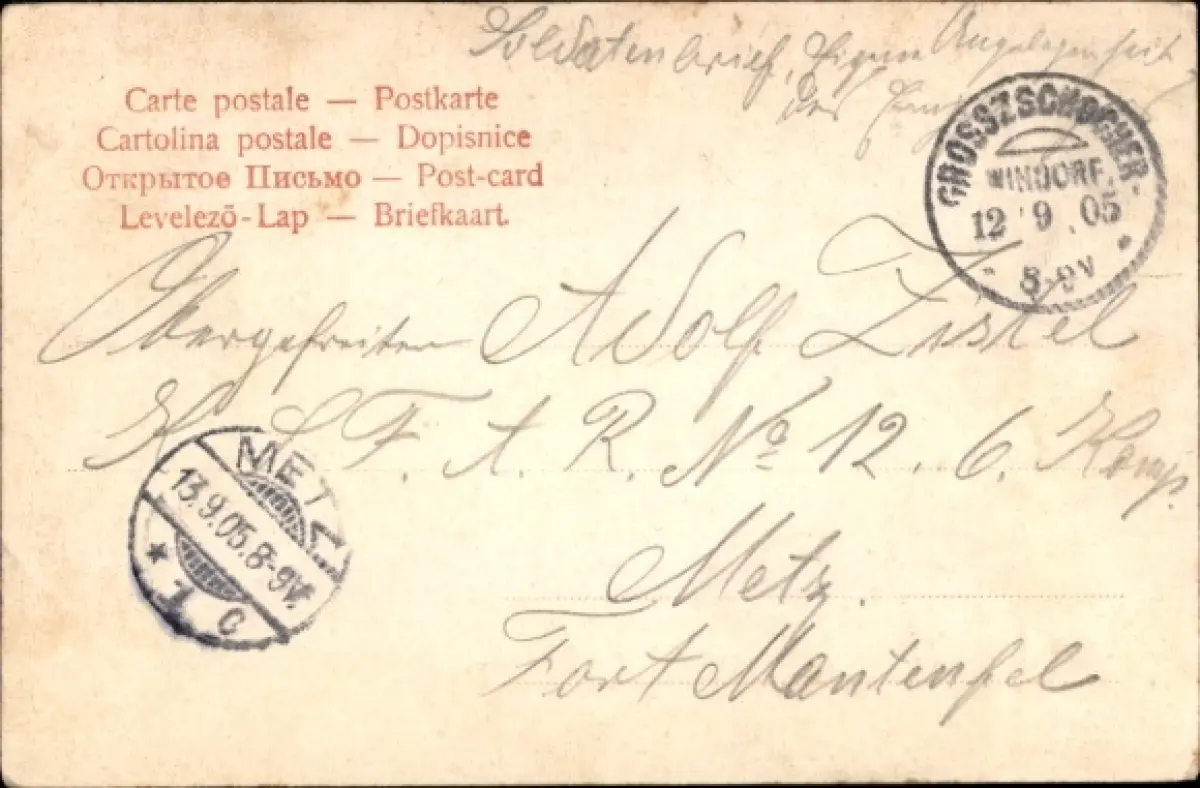 Soldatenbrief, Eigene Angelegenheit
des
Carte postale — Postkarte
Cartolina postale — Dopisnice
Открытое Письмо — Post-card
Levelező-Lap — Briefkaart.
GROSSZSCHOCHER-
WINDORF.
12 9 05
8-9V
Obergefreiten Adolf Zistel
K. S. F. A. R. No 12. 6. Komp.
METZ
13.9.05.8-9V.
* 1 c
Metz.
Fort Manteufel